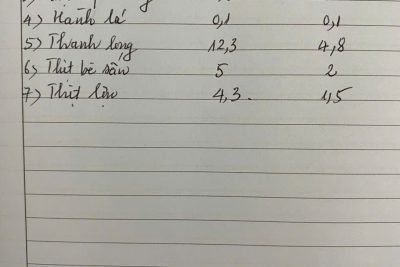 4) Hành lá 0,1 0,1
5) Thanh long 12,3 4,8
6) Thịt bê sấn 5 2
7) Thịt lợn 4,3. 1,5